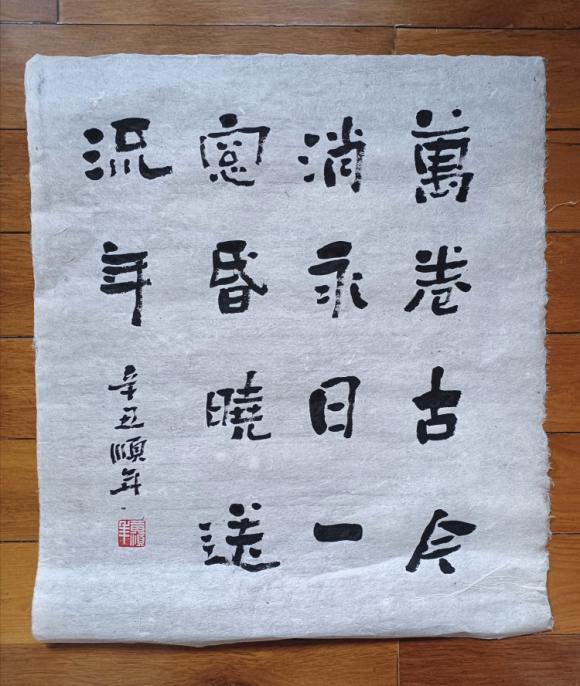 萬卷古今
消永日一
窓昏曉送
流年
辛丑順年